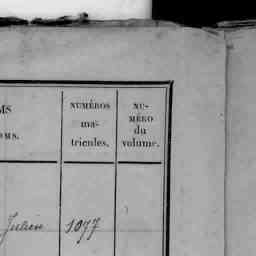 MS
OMS.
NUMÉROS
ma-
tricules.
NU-
MÉRO
du
volume.
Julien 1077